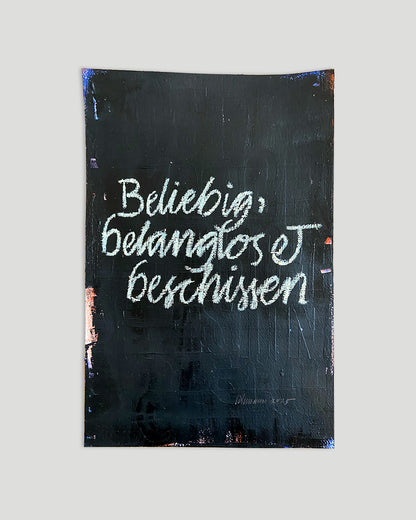 Beliebig,
belanglos &
beschissen
2025